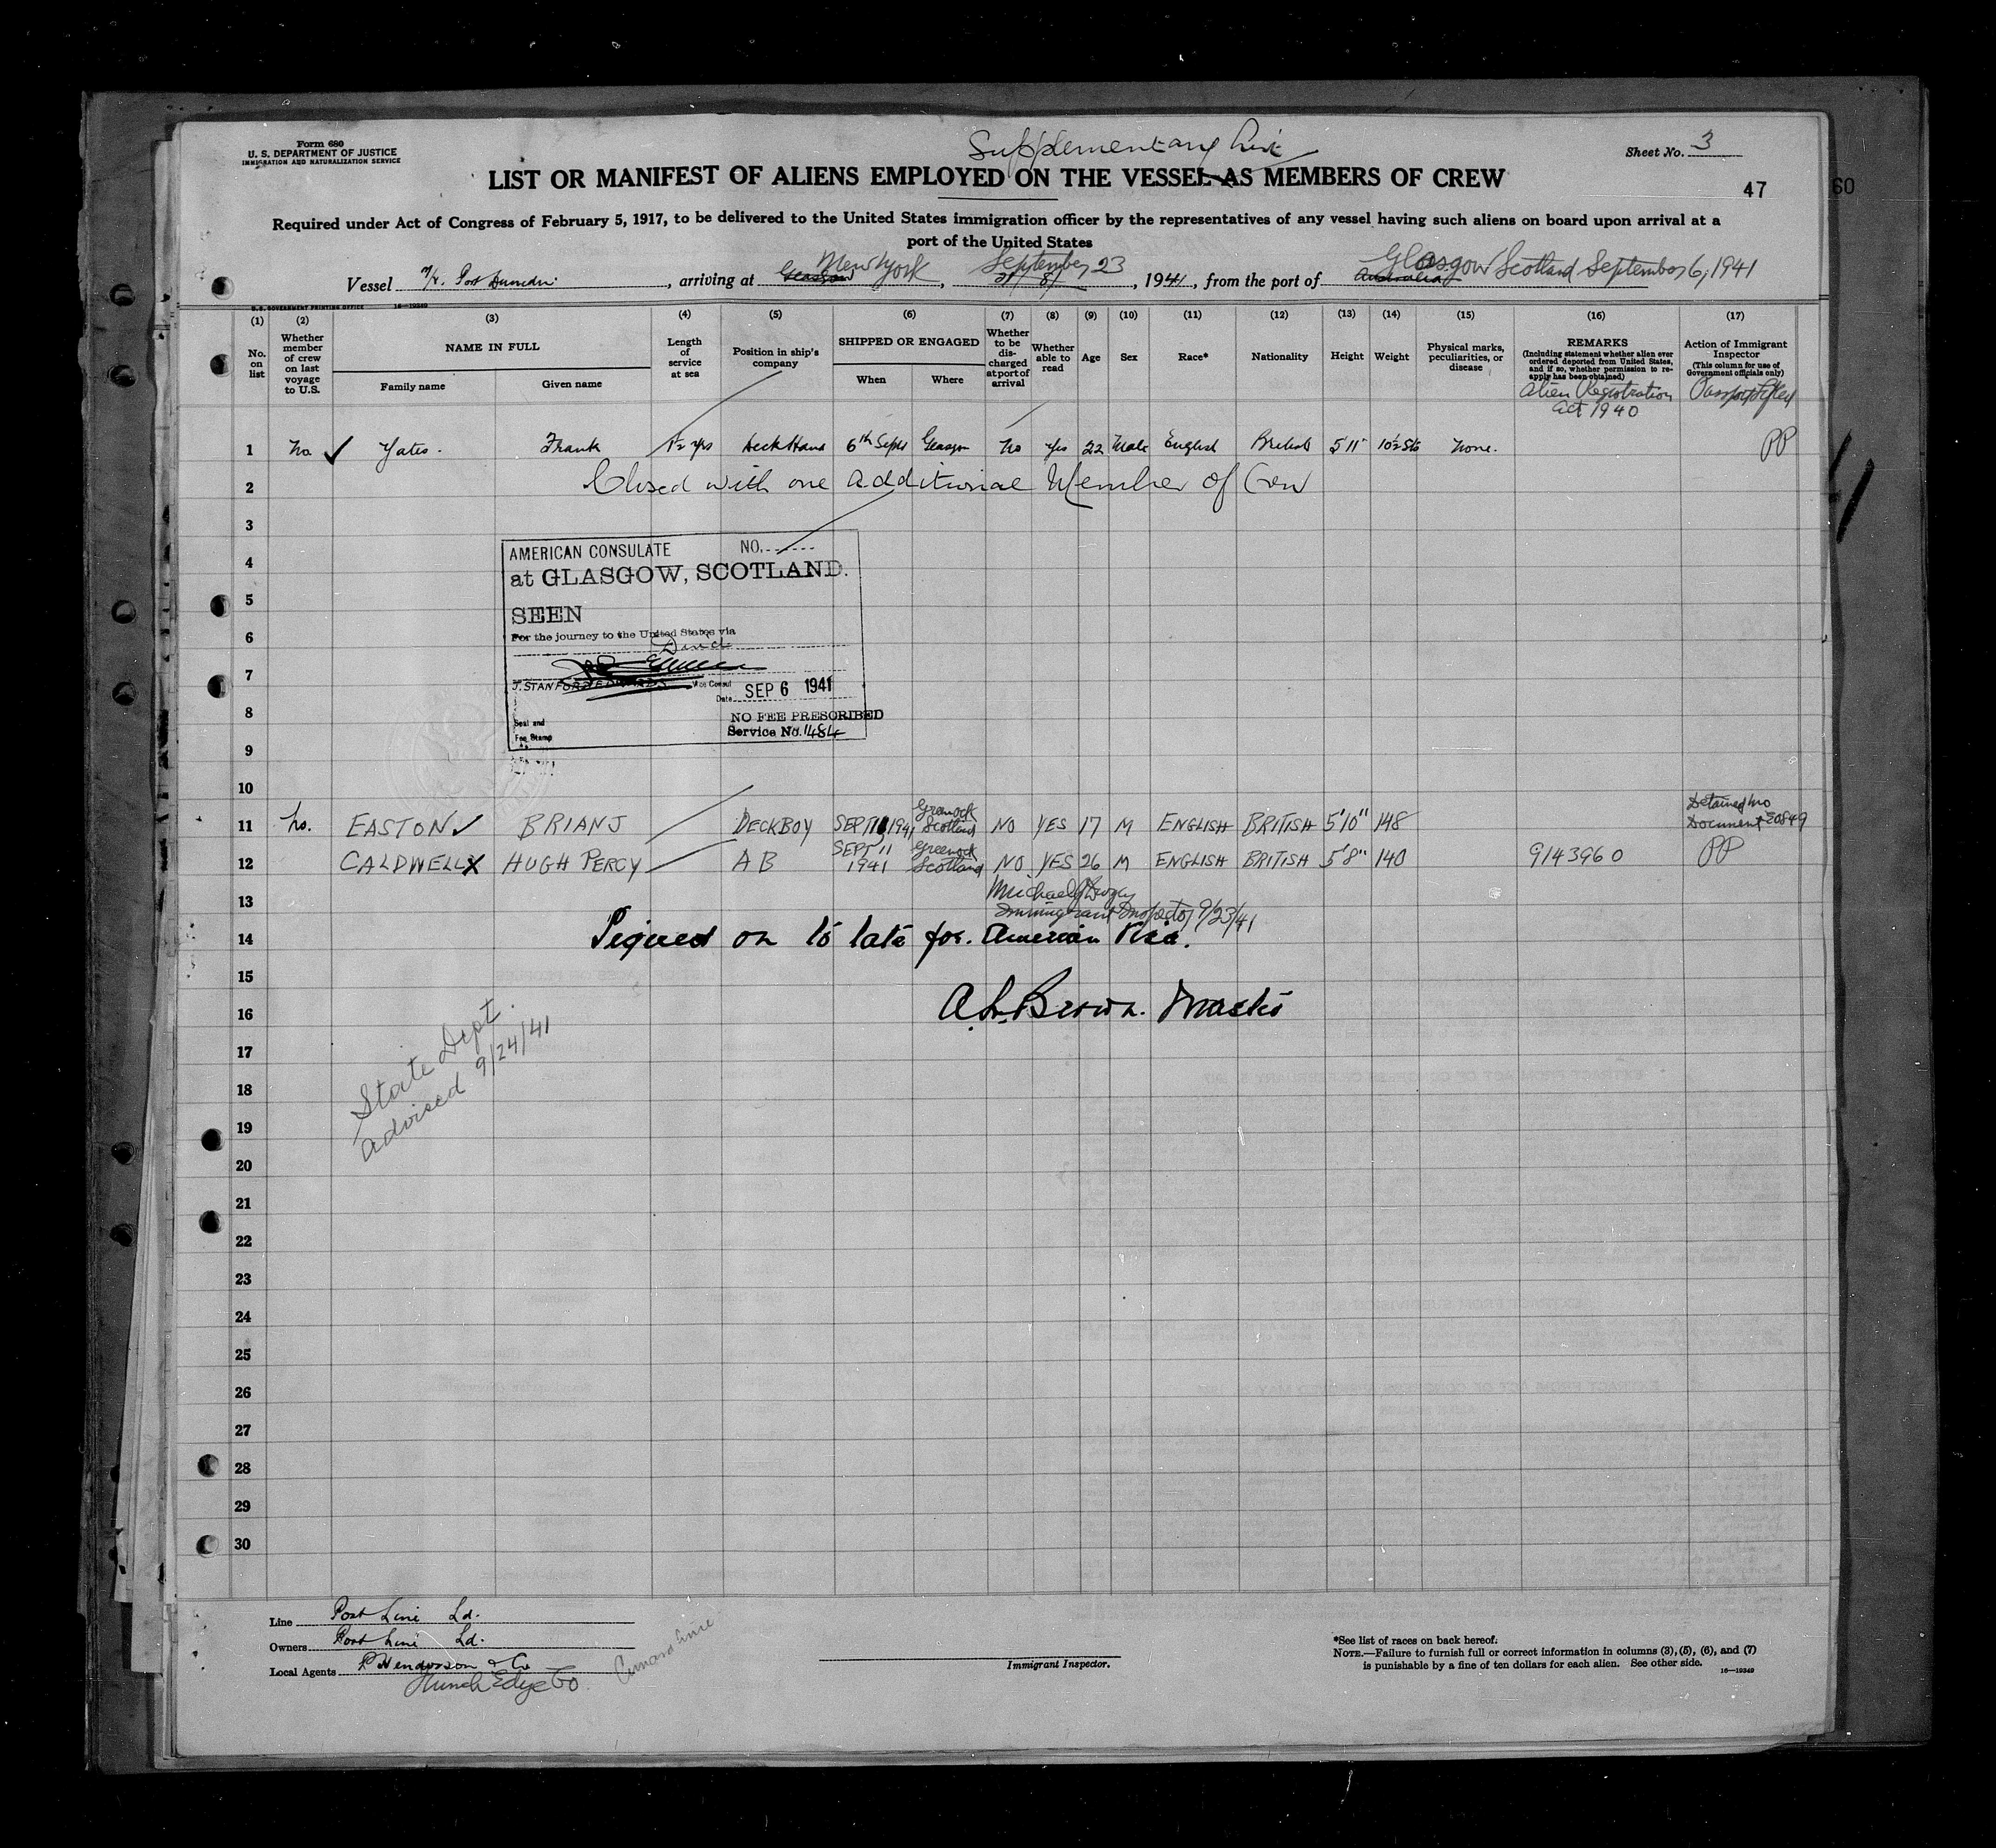 Form 680
U. S. DEPARTMENT OF JUSTICE
IMMIGRATION AND NATURALIZATION SERVICE
Supplementary List
Sheet No. 3
LIST OR MANIFEST OF ALIENS EMPLOYED ON THE VESSEL AS MEMBERS OF CREW
47
60
Required under Act of Congress of February 5, 1917, to be delivered to the United States immigration officer by the representatives of any vessel having such aliens on board upon arrival at a
port of the United States
Vessel M/V. Port Dunedin, arriving at Glasgow New York, September 23, 1941, from the port of Australia Glasgow Scotland September 6, 1941
U.S. GOVERNMENT PRINTING OFFICE 16—19349
(1) (2) (3) (4) (5) (6) (7) (8) (9) (10) (11) (12) (13) (14) (15) (16) (17)
No. on list
Whether member of crew on last voyage to U.S.
NAME IN FULL
Family name
Given name
Length of service at sea
Position in ship's company
SHIPPED OR ENGAGED
When
Where
Whether to be discharged at port of arrival
Whether able to read
Age
Sex
Race*
Nationality
Height
Weight
Physical marks, peculiarities, or disease
REMARKS
(Including statement whether alien ever ordered deported from United States, and if so, whether permission to reapply has been obtained)
Alien Registration
Act 1940
Action of Immigrant Inspector
(This column for use of Government officials only)
1 No. Yates. Frank 1½ yrs Deck Hand 6th Sept Glasgow No Yes 22 Male English British 5'11" 10½ Sts None. PP
2 Closed with one additional Member of Crew
3
4
AMERICAN CONSULATE NO.
at GLASGOW, SCOTLAND.
5
SEEN
6
For the journey to the United States via
7
J. STANFORD EDWARDS Vice Consul
Date SEP 6 1941
8
NO FEE PRESCRIBED
Seal and
Fee Stamp
Service No. 1484
9
10
11 No. EASTON BRIAN J DECKBOY SEPT 11, 1941 Greenock Scotland NO YES 17 M ENGLISH BRITISH 5'10" 148 Detained no Document
12 CALDWELL X HUGH PERCY A B SEPT 11 1941 Greenock Scotland NO YES 26 M ENGLISH BRITISH 5'8" 140 9143960 PP
13
Immigrant Inspector 9/23/41
14 Signed on to late for American Visa.
15
16 A. L. Brown. Master
17
18
State Dept.
advised 9/24/41
19
20
21
22
23
24
25
26
27
28
29
30
Line Port Line Ld.
Owners Port Line Ld.
Local Agents P Henderson & Co
Funch Edye Co
Cunard Line
Immigrant Inspector.
*See list of races on back hereof.
NOTE.—Failure to furnish full or correct information in columns (3), (5), (6), and (7)
is punishable by a fine of ten dollars for each alien. See other side.
16—19349